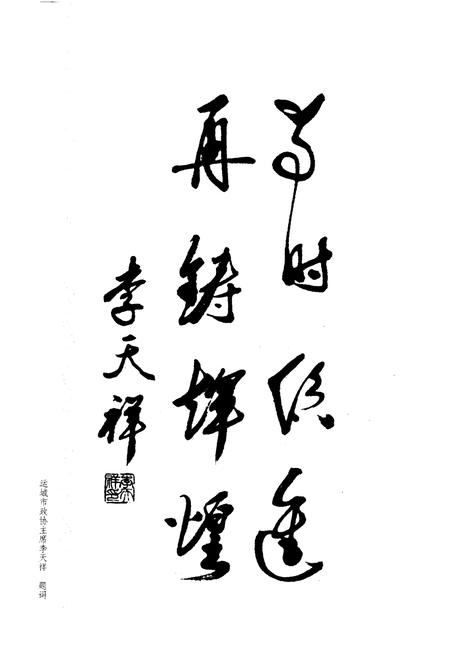 与时俱進
再铸辉煌
李天祥
运城市政协主席李天祥 题词